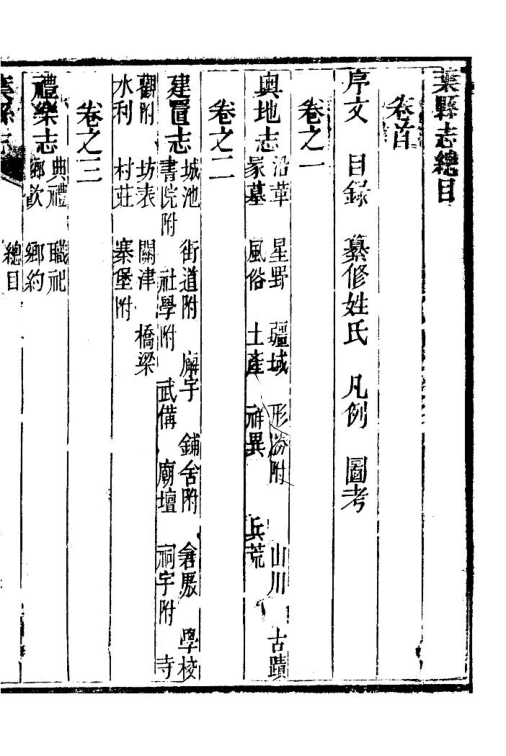 葉縣志總目
卷首
序文 目錄 纂修姓氏 凡例 圖考
卷之一
輿地志 沿革 星野 疆域 形勝附 山川 古蹟
冢墓 風俗 土產 祥異 兵荒
卷之二
建置志 城池 街道附 廨宇 鋪舍附 倉厫 學校
書院附 社學附 武備 廟壇 祠宇附 寺
觀附 坊表 關津 橋梁
水利 村莊 寨堡附
卷之三
禮樂志 典禮 職祀
鄉飲 鄉約
葉縣志 總目